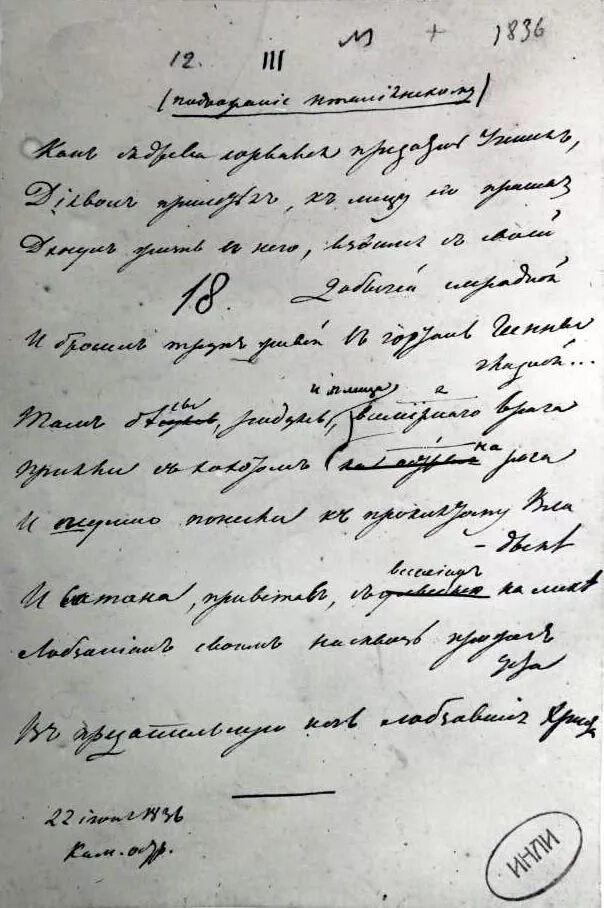 12. III М + 1836
(Подражаніе италіянскому)
Какъ съ древа сорвался предатель ученикъ,
Діаволъ прилетѣлъ, къ лицу его приникъ
Дхнулъ жизнь въ него, взвился съ своей
18 добычей смрадной
И бросилъ трупъ живой въ гортань Геенны
гладной...
сы и плеща 2
Тамъ бѣ, радуясь, всемірнаго врага
Пріяли съ хохотомъ на рога
И шумно понесли къ проклятому Вла
-дыкѣ
веселіемъ
И Сатана, привставъ, съ на ликѣ
Лобзаніемъ своимъ насквозь прожегъ
уста
Въ предательскую ночь лобзавшія Христа
22 іюня 1836
Кам. остр.
ИНЛИ